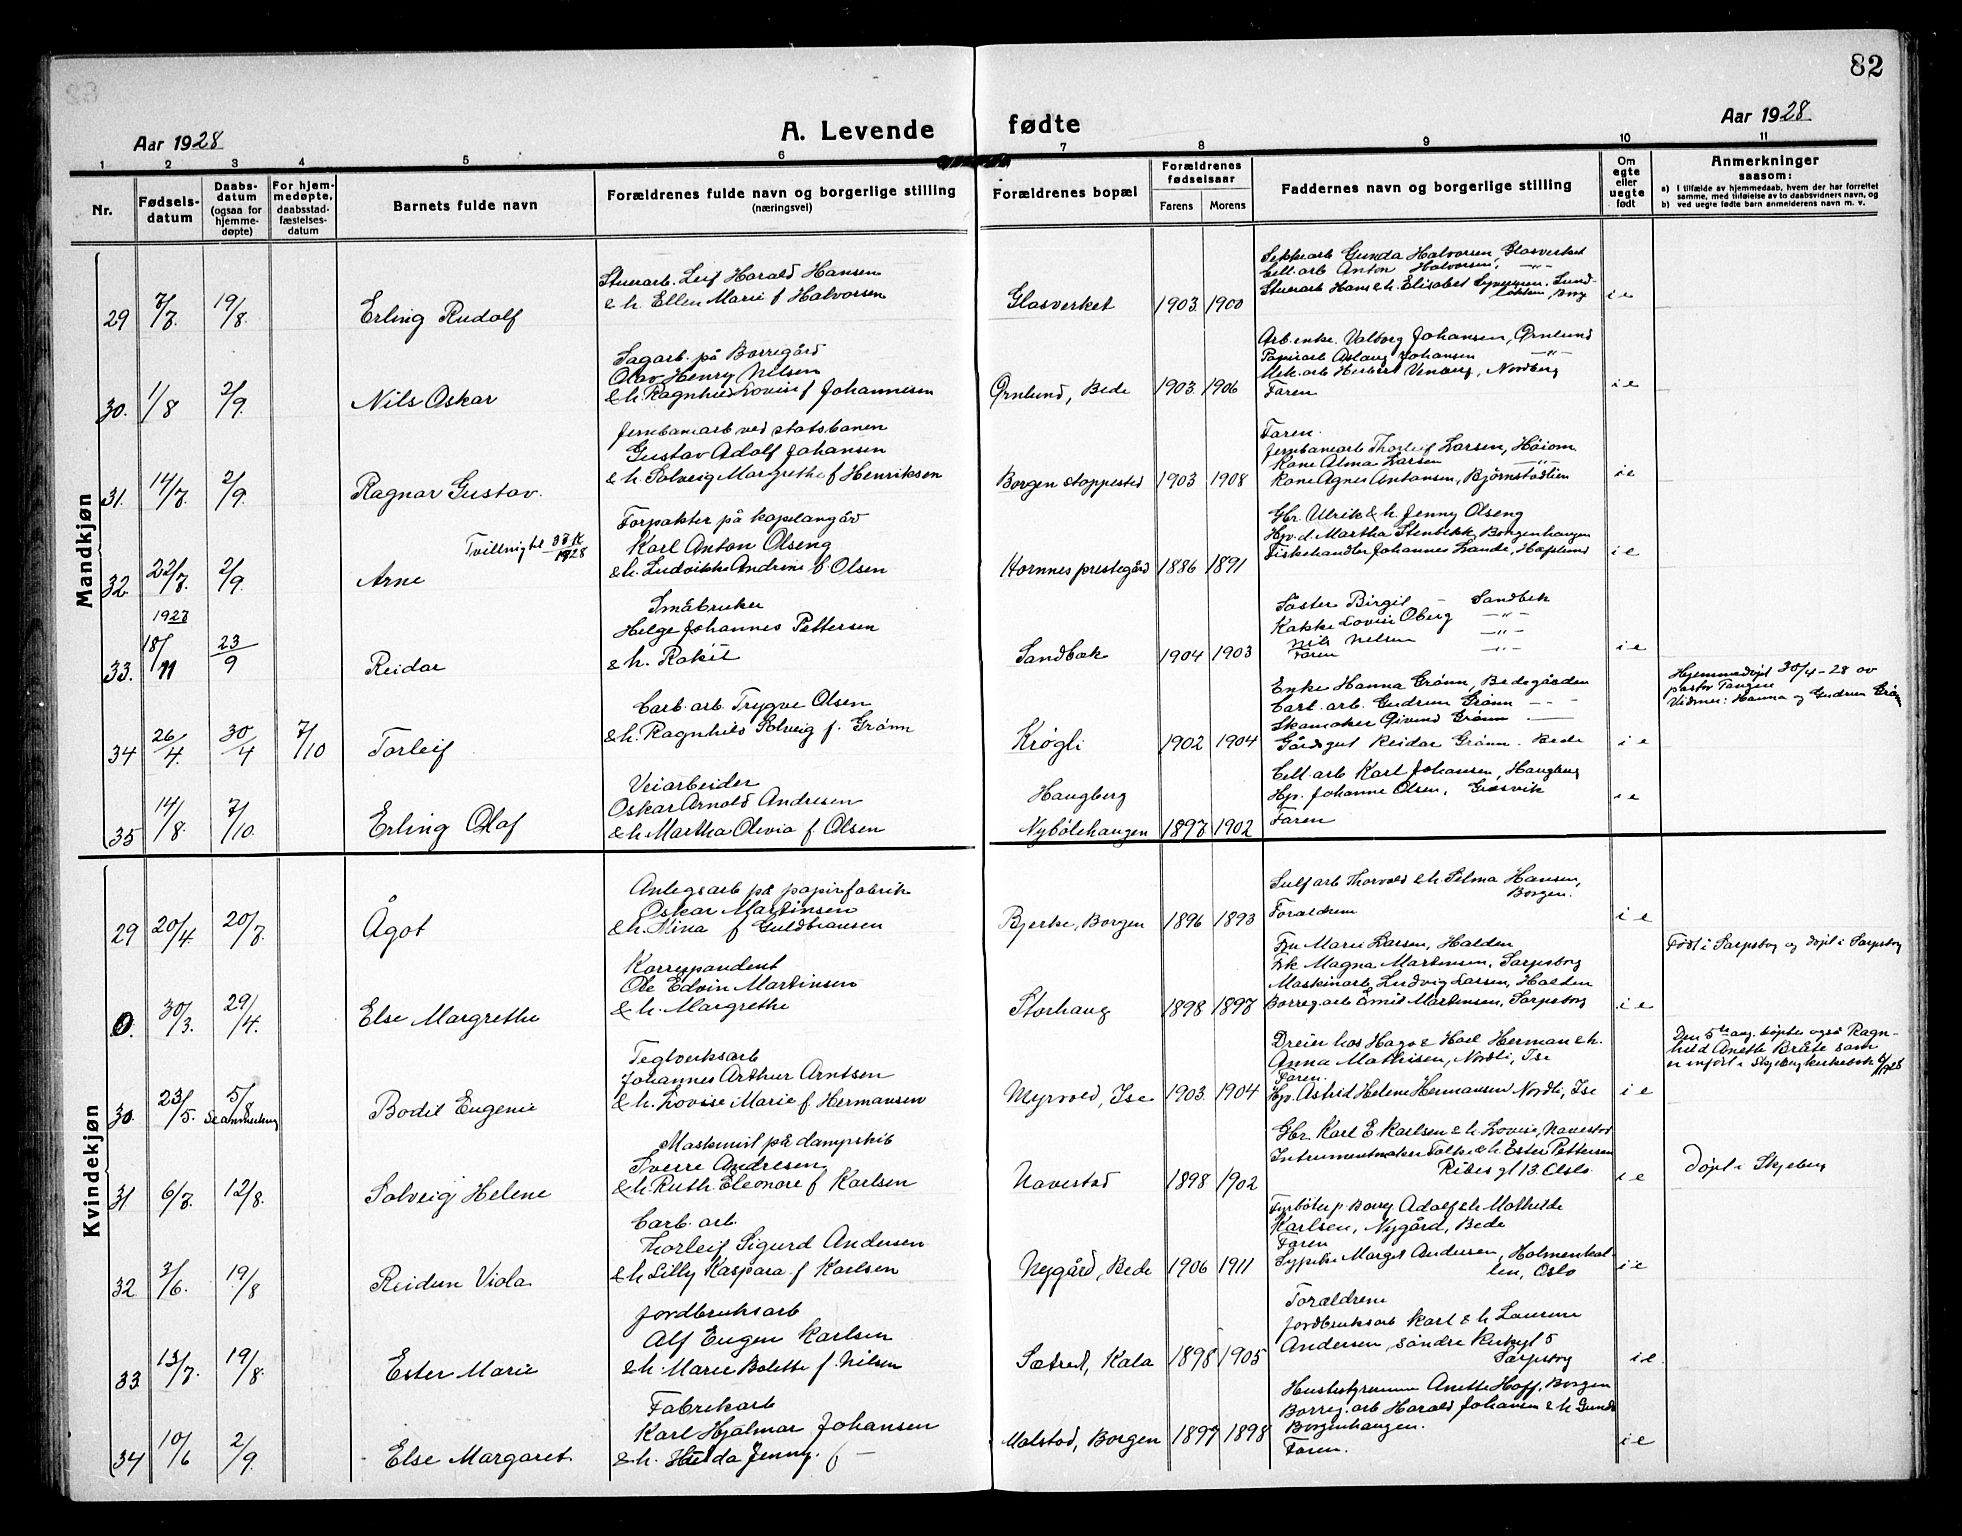 82
Aar 1928
A. Levende fødte
Aar 1928
1 2 3 4 5 6 7 8 9 10 11
Nr.
Fødselsdatum
Daabsdatum (ogsaa for hjemmedøpte)
For hjemmedøpte, daabsstadfæstelsesdatum
Barnets fulde navn
Forældrenes fulde navn og borgerlige stilling
(næringsvei)
Forældrenes bopæl
Forældrenes fødselsaar
Farens Morens
Faddernes navn og borgerlige stilling
Om egte eller uegte født
Anmerkninger
saasom:
a) I tilfælde av hjemmedaab, hvem der har forrettet
samme, med tilføielse av to daabsvidners navn, og
b) ved uegte fødte barn anmelderens navn m. v.
Mandkjøn
29 7/7. 19/8. Erling Rudolf
Stuerarb. Leif Harald Hansen
& h. Ellen Marie f Halvorsen
Glasverket 1903 1900
Gunda Halvorsen, Glasverket
Cell. arb Anton Halvorsen, -"-
Stuerarb Hans & h. Elisabet
i e
30. 1/8 2/9. Nils Oskar
Sagarb. på Borregård
Olav Henry Nilsen
& h. Ragnhild Lovise f Johannesen
Ørnlund, Bede 1903 1906
Arb. enke. Valborg Johansen, Ørnlund
Papirarb Aslaug Johansen -"-
Mek. arb Herbert Nordberg
Faren
i e
31. 14/7. 2/9. Ragnar Gustav.
Jernbanearb ved statsbanen
Gustav Adolf Johansen
& h. Solveig Margrethe f Henriksen
Borgen stoppested 1903 1908
Faren.
Jernbanearb Thorleif Larsen, Høiom
Kone Alma Larsen -"-
Kone Agnes Antonsen, Bjørnstadlien
i e
32 22/7. 2/9. Arne
Forpakter på kapelangård
Karl Anton Olseng
& h. Ludvikke Andrine f. Olsen
Hornnes prestegård 1886 1891
Gbr. Ulrik & h. Jenny Olseng
Martha Stenbekk, Borgenhaugen
Fiskehandler Johannes Lande, Hafslund
i e
33. 1927 18/11 23/9 Reidar
Småbruker
Helge Johannes Pettersen
& h. Rakil
Sandbæk 1904 1903
Søster Birgit - Sandbek
Kokke Lovise Oberg -"-
Nils Nilsen -"-
Faren -"-
i e
34 26/4. 30/4 7/10 Torleif
Carb. arb. Trygve Olsen
& h. Ragnhild Solveig f. Grønn
Krøgli 1902 1904
Enke Hanna Grønn, Bedegården
Carb. arb. Gudrun Grønn - "-
Skomaker Øivind Grønn.
Gårdsgut Reidar Grønn. Bede
i e
Hjemmedøpt 30/4-28 av
pastor Tangen
Vidner: Hanna og Gudrun Grønn
35 14/8. 7/10. Erling Olaf
Veiarbeider
Oskar Arnold Andresen
& h. Martha Olivia f Olsen
Haugberg
Nybølehaugen 1897 1902
Cell. arb Karl Johansen, Haugberg
Hp. Johanne Olsen, Græsvik
Faren
i e
Kvindekjøn
29 20/4. 20/7. Ågot
Anlegsarb på papirfabrik
Oskar Martinsen
& h. Mina f Guldbransen
Bjerke, Borgen 1896 1893
Sulf arb Thorvald & h Selma Hansen,
Borgen.
Forældrene
i e
0. 30/3. 29/4. Else Margrethe
Korrespondent
Ole Edvin Martinsen
& h. Margrethe
Storhaug 1898 1897
Fru Marie Larsen, Halden
Frk Magna Martinsen, Sarpsborg
Maskinarb. Ludvig Larsen, Halden
Borreg. arb Emil Martinsen, Sarpsborg
i e
Født i Sarpsborg og døpt i Sarpsborg
30. 23/5. 5/8 Se anmerkning Bodil Eugenie
Teglverksarb
Johannes Arthur Arntsen
& h. Lovise Marie f Hermansen
Myrvold, Ise 1903 1904
Dreier hos Herman & h.
Anna Mathisen, Nordli, Ise
Faren.
Hp. Astrid Helene Hermansen Nordli, Ise
i e
Den 5te aug. døptes også Ragn-
hild Anette Bråte som
er inført i Skjeberg kirkebok
31 6/7. 12/8. Solveig Helene
Maskinist på dampskib
Sverre Andresen
& h. Ruth Eleonore f Karlsen
Navestad 1898 1902
Gbr. Karl E Karlsen & h Lovise, Navestad
Instrumentmaker & h. Ester Pettersen
13, Oslo.
i e
døpt i Skjeberg
32 3/6. 19/8 Reidun Viola
Carb. arb.
Thorleif Sigurd Andersen
& h Lilly Kaspara f Karlsen
Nygård, Bede 1906 1911
Fyrbøter p. Borreg Adolf & h Mathilde
Karlsen, Nygård, Bede
Faren
Sypike Margit Andersen, Holmenkol-
len, Oslo
i e
33 13/7. 19/8. Ester Marie
Jordbruksarb
Alf Eugen Karlsen
& h. Marie Bolette f. Nilsen
Sætred, Kala 1898 1905
Forældrene
Jordbruksarb Karl & h Laurine
Andersen, søndre 5
Sarpsborg
i e
34 10/6 2/9. Else Margaret
Fabrikarb
Karl Hjalmar Johansen
& h. Hulda Jenny. f —
Molstad, Borgen 1897 1898
Husbestyrerinne Anette Hoff, Borgen
Borreg. arb Harald Johansen & h Gunda
Borgenhaugen.
Faren.
i e